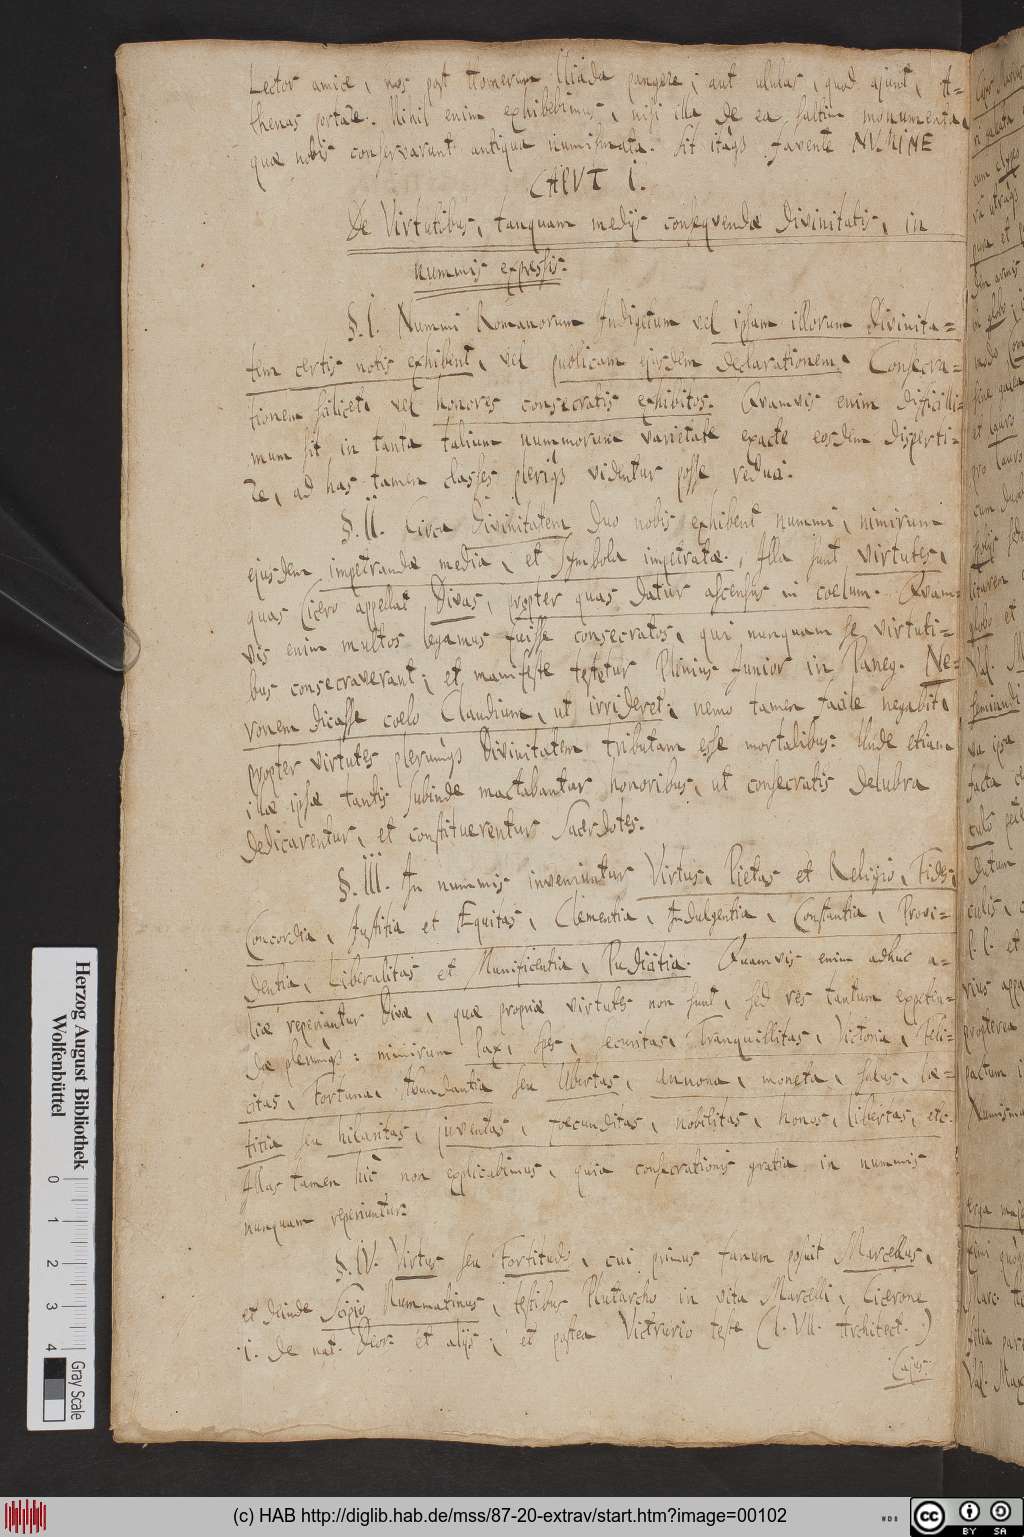 Lector amice, nos post Homerum Iliada pangere; aut ululas, quod ajunt, A=
thenas portare. Nihil enim exhibebimus, nisi illa de ea saltim monumenta,
quæ nobis conservarunt antiqua numismata. Sit itaqs favente NUMINE
CAPUT I.
De Virtutibus, tanquam medijs consequendæ Divinitatis, in
nummis expressis.
§. I. Nummi Romanorum Indigetum vel ipsam illorum Divinita=
tem certis notis exhibent, vel publicam ejusdem declarationem, Consecra=
tionem scilicet, vel honores consecratis exhibitos. Quamvis enim difficilli=
mum sit in tanta talium nummorum varietate exacte eosdem disperti=
re, ad has tamen classes pleriqs videntur posse reduci.
§. II. Circa Divinitatem duo nobis exhibent nummi, nimirum
ejusdem impetrandæ media, et symbola impetratæ. Illa sunt virtutes,
quas Cicero appellat Divas, propter quas datur ascensus in coelum. Quam=
vis enim multos legamus fuisse consecratos, qui nunquam se virtuti=
bus consecraverant; et manifeste testetur Plinius Junior in Paneg. Ne=
ronem dicasse coelo Claudium, ut irrideret; nemo tamen facile negabit,
propter virtutes plerumqs Divinitatem tributam esse mortalibus: Unde etiam
illæ ipsæ tantis subinde mactabantur honoribus, ut consecratis delubra
dedicarentur, et constituerentur Sacerdotes.
§. III. In nummis inveniuntur Virtus, Pietas et Religio, Fides,
Concordia, Justitia et Æquitas, Clementia, Indulgentia, Constantia, Provi=
dentia, Liberalitas et Munificentia, Pudicitia. Quamvis enim adhuc a=
liæ reperiantur Divæ, quæ propriæ virtutes non sunt, sed res tantum expeten=
dæ plerumqs: nimirum Pax, Spes, ecuritas, Tranquillitas, Victoria, Feli=
citas, Fortuna, Abundantia seu Ubertas, annona, moneta, salus, læ=
titia seu hilaritas, juventas, foecunditas, nobilitas, honos, libertas, etc.
Illas tamen hic non explicabimus, quia consecrationis gratia in nummis
nunquam reperiuntur.
§. IV. Virtus seu Fortitudo, cui primus fanum posuit Marcellus,
et deinde Scipio Nummatinus, testibus Plutarcho in vita Marcelli, Cicerone
l. de nat. Deor. et alijs; et postea Victruvio teste (l. VII. Architect.)
Herzog August Bibliothek
Wolfenbüttel
0 1 2 3 4
Gray Scale
(c) HAB http://diglib.hab.de/mss/87-20-extrav/start.htm?image=00102
cc BY SA